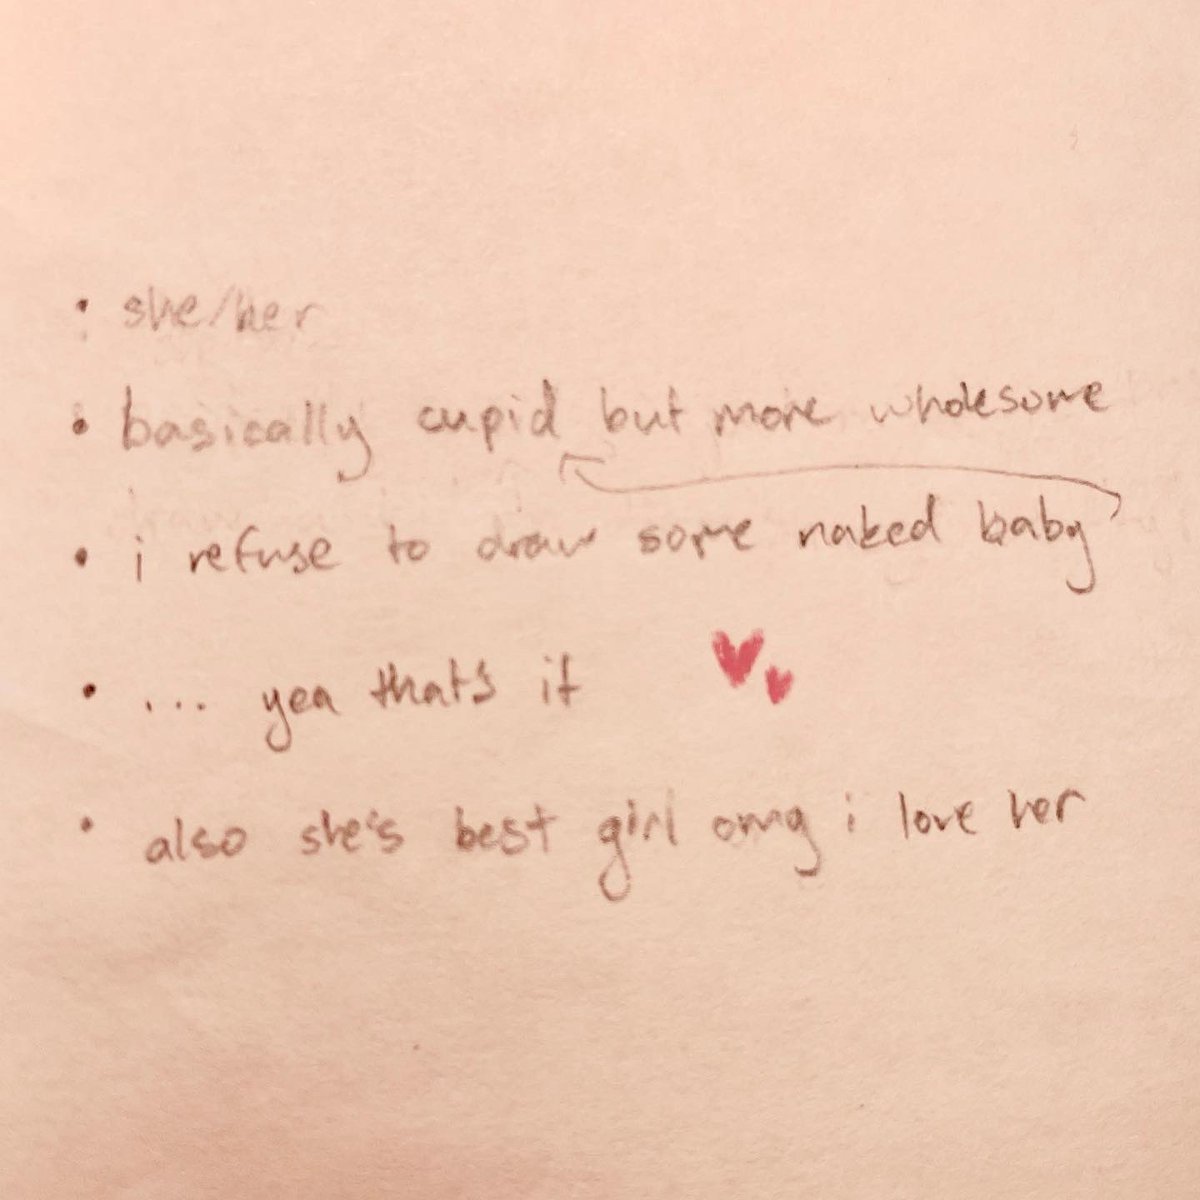 • she/her
• basically cupid but more wholesome
• i refuse to draw some naked baby
• ... yea that's it
• also she's best girl omg i love her